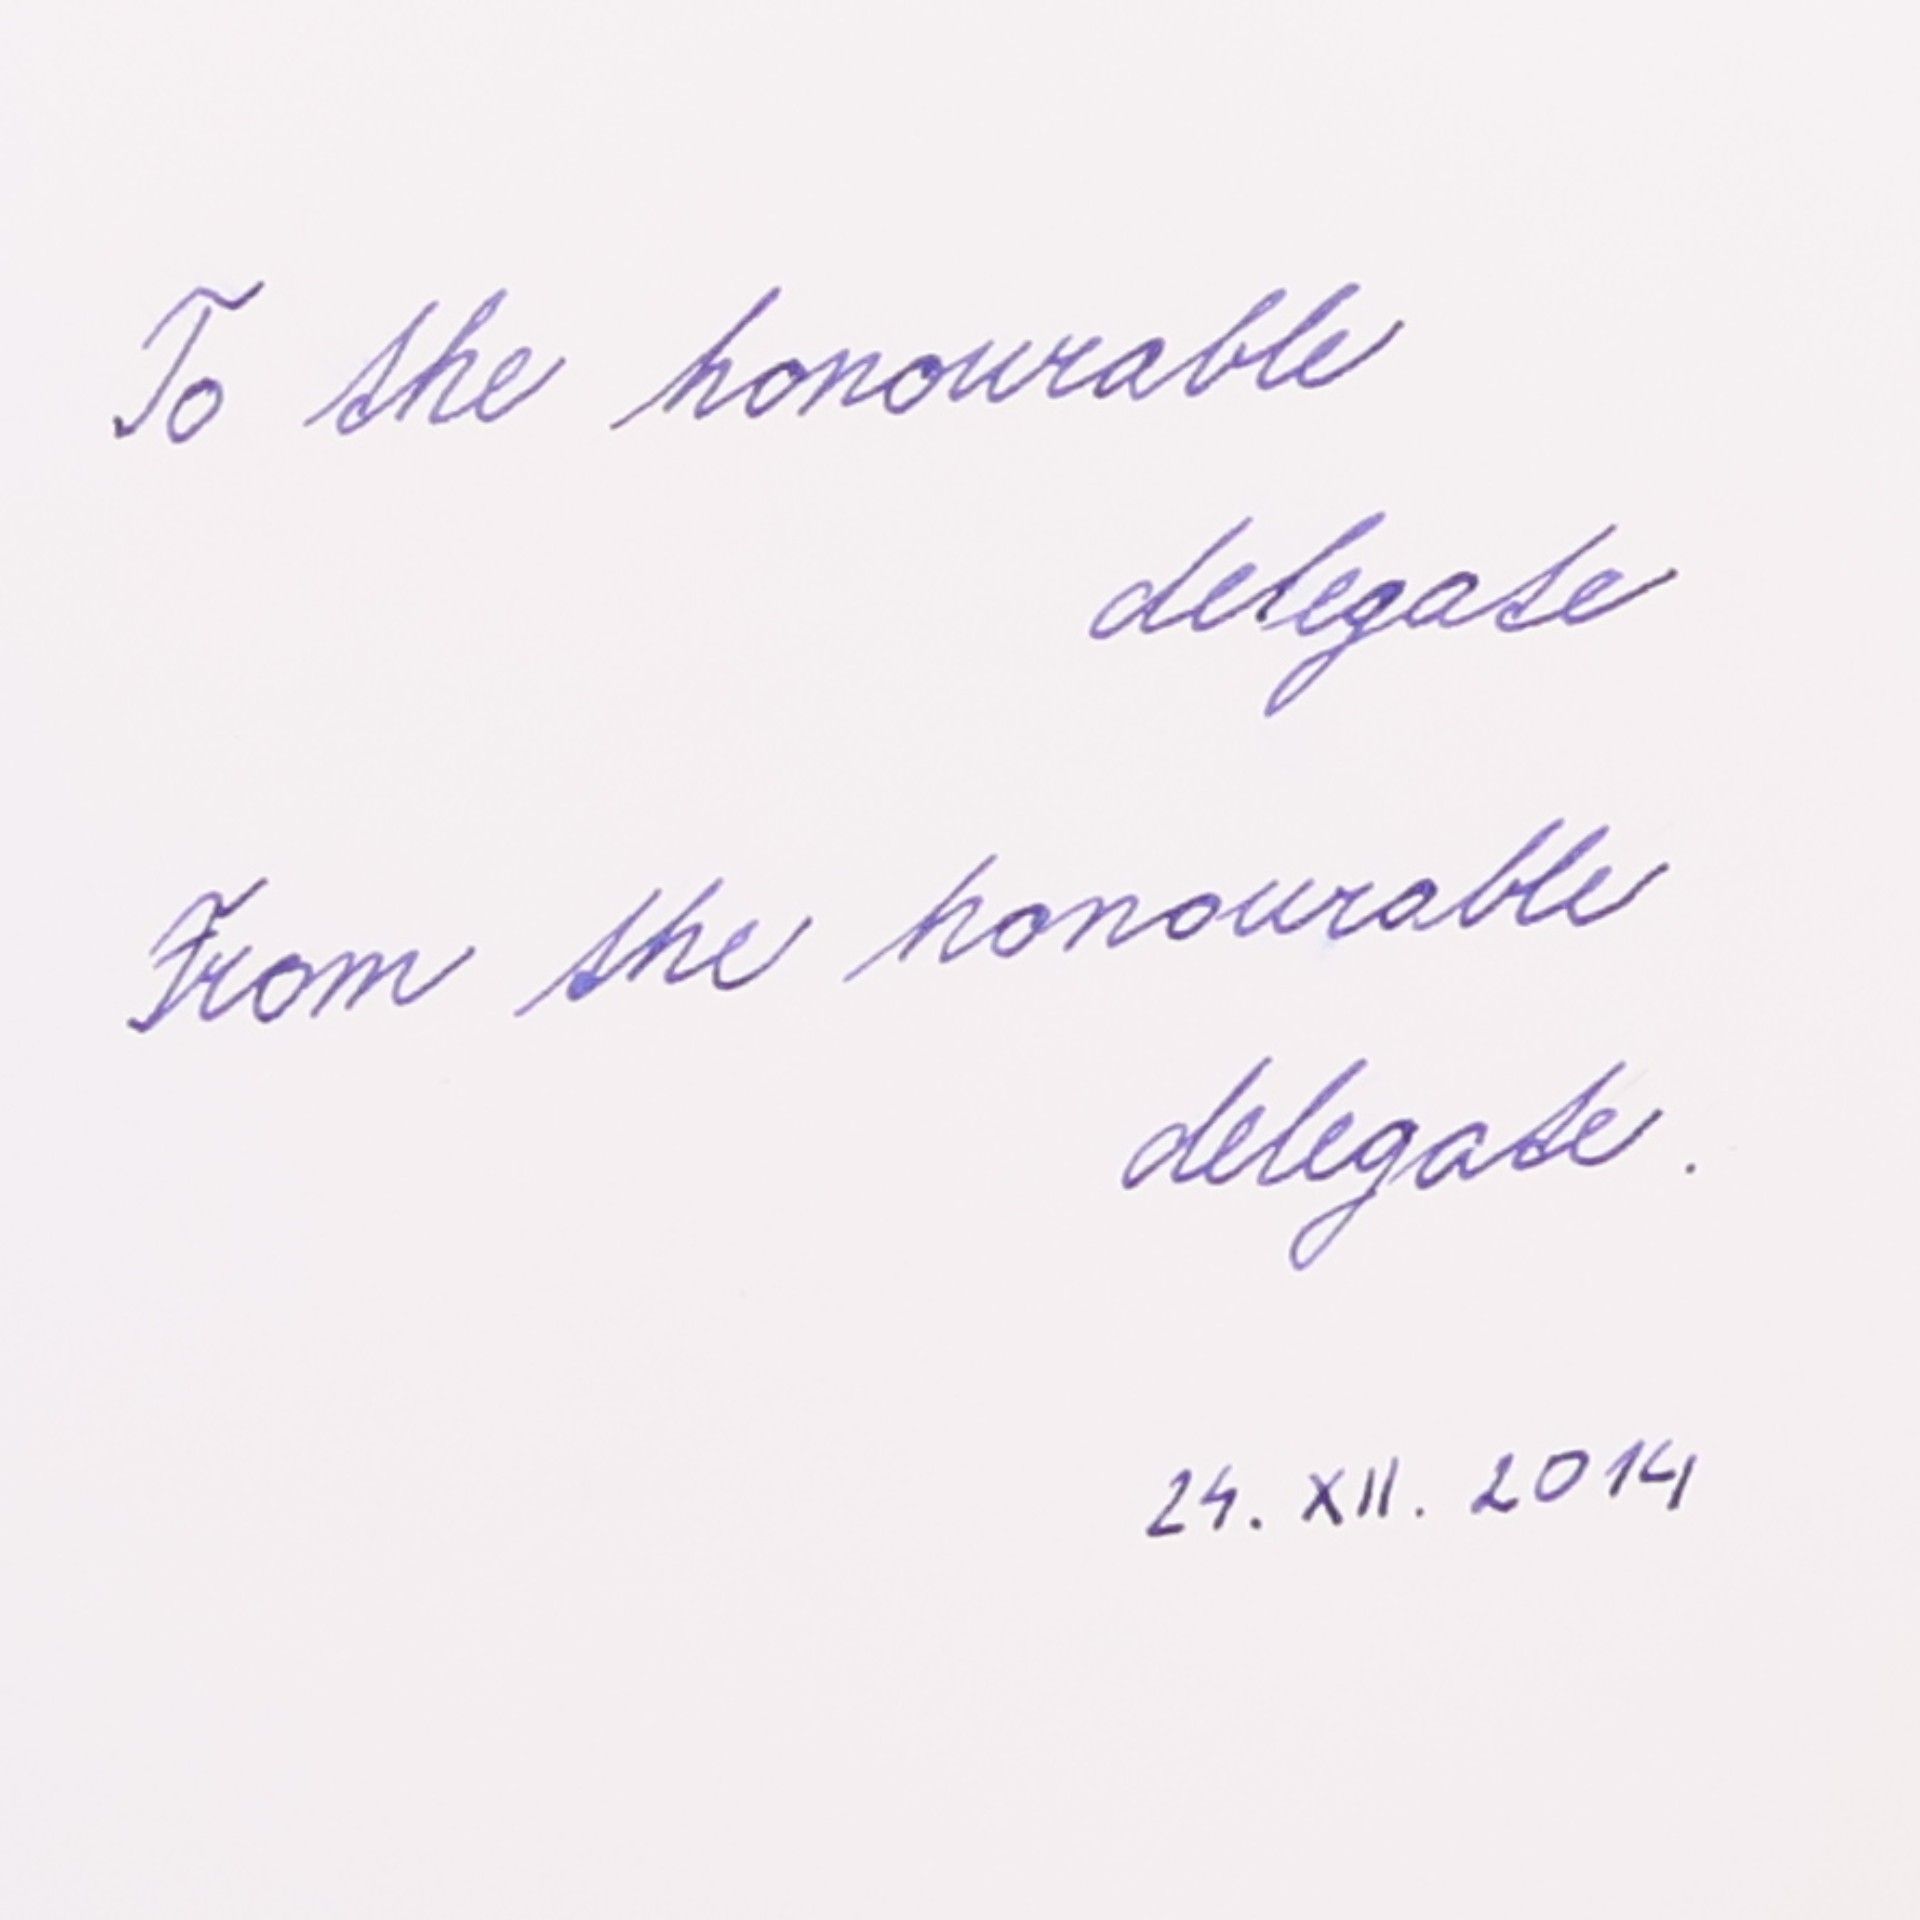 To the honourable
delegate
From the honourable
delegate.
24. XII. 2014